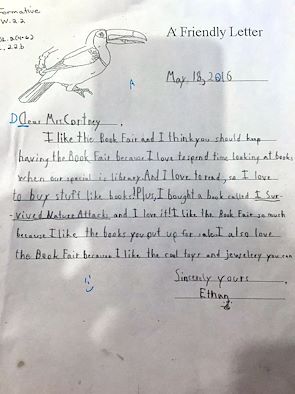 Formative
W.2.2
L.2.2b
A Friendly Letter
May 18, 2016
Dear Mrs. Cortney
I like the Book Fair and I think you should keep
having the Book Fair because I love to spend time looking at books
when our special is library. And I love to read, so I love
to buy stuff like books! Plus, I bought a book called I Sur-
-vived Nature Attacks, and I love it! I like the Book Fair so much
because I like the books you put up for sale. I also love
the Book Fair because I like the cool toys and jewelery you can
Sincerely yours,
Ethan